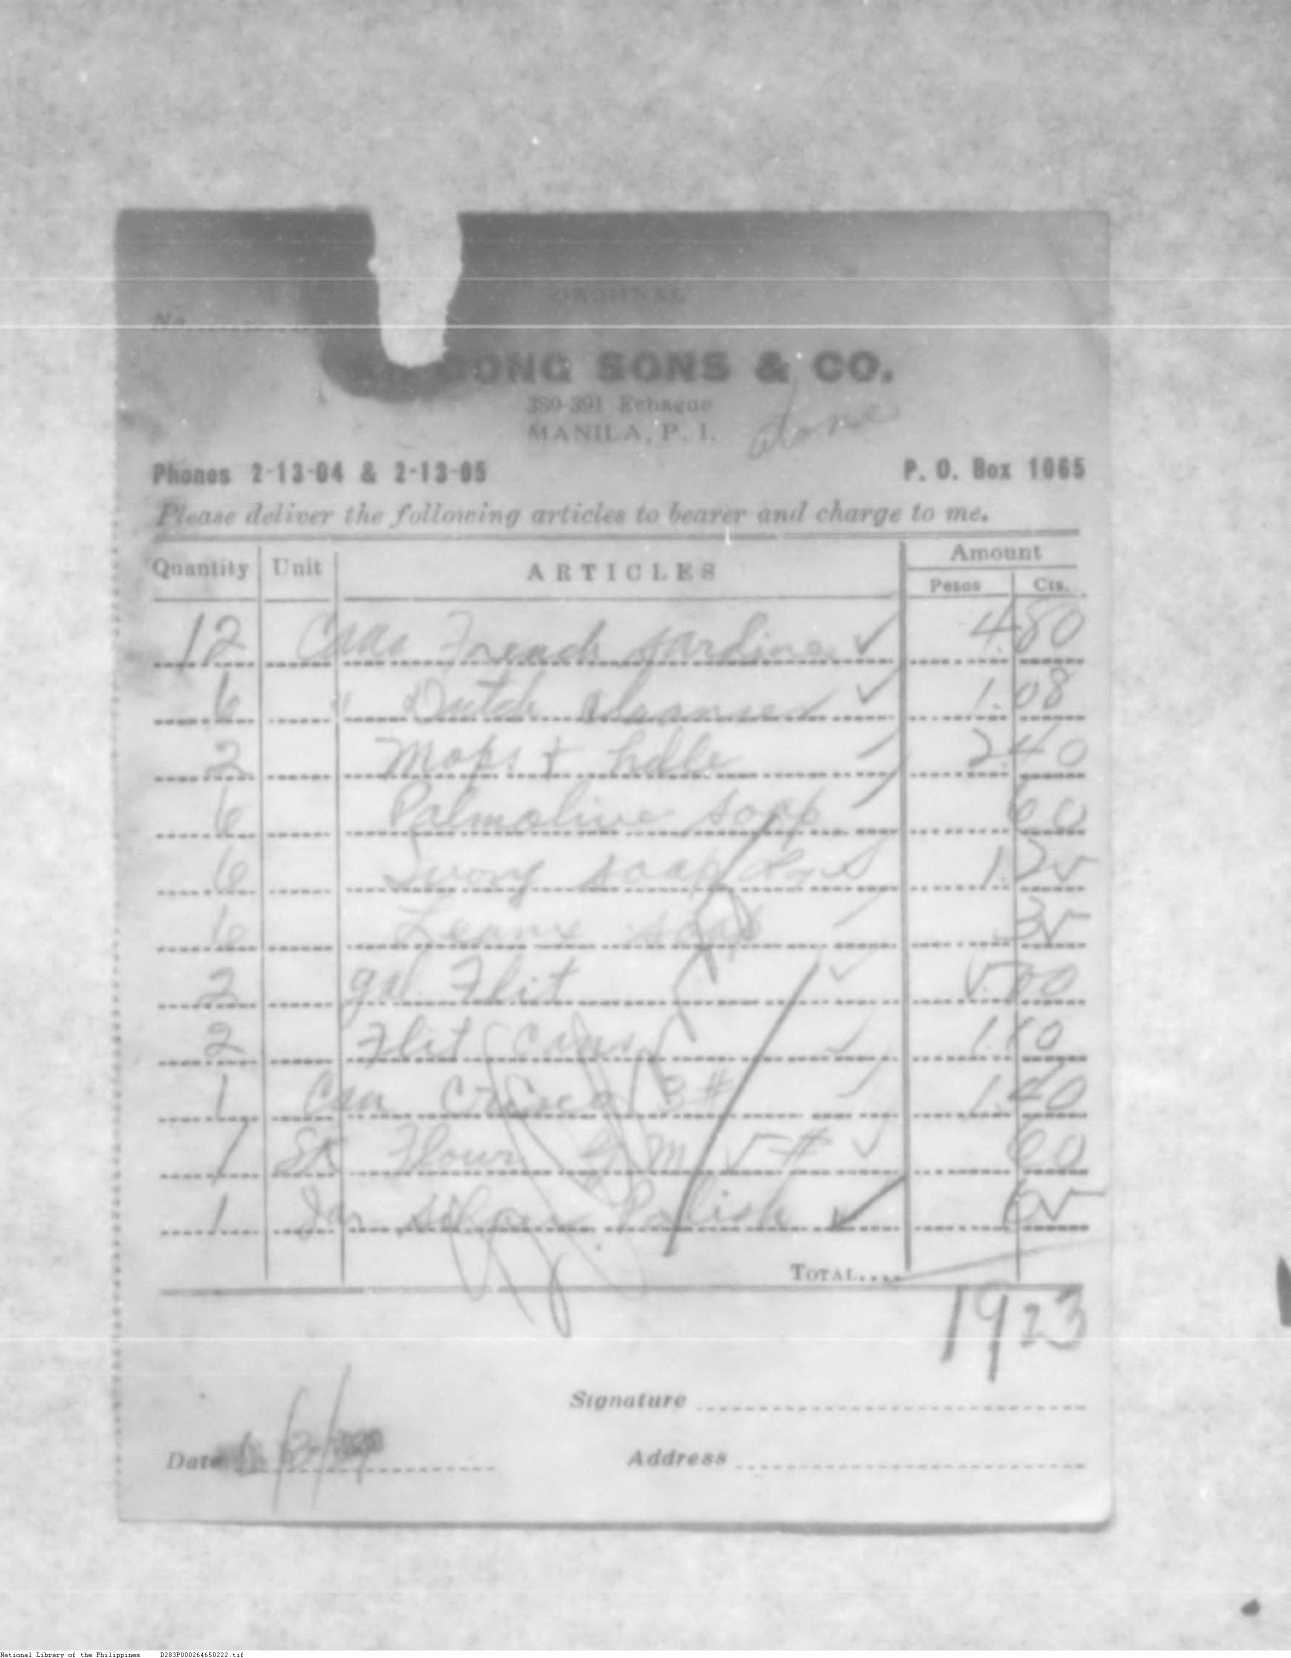 ORIGINAL
No.
SONS & CO.
389-391 Echague
MANILA, P. I.
done
Phones 2-13-04 & 2-13-05 P. O. Box 1065
Please deliver the following articles to bearer and charge to me.
Quantity Unit ARTICLES Amount
Pesos Cts.
12 Cans French Sardines ✓ 4.80
6 " Dutch cleanser ✓ 1.08
2 Mops + hdle ✓ 2.40
6 Palmolive soap ✓ 60
6 Ivory soap ✓ 1.25
6 soap ✓ 35
2 gal. Flit ✓ 5.00
2 Flit Cans ✓ 1.10
1 Can Crisco 3# ✓ 1.40
1 Sk Flour G M 5# ✓ 60
1 Jar Silver Polish ✓ 65
TOTAL....
1923
Signature
Date
Address
National Library of the Philippines D283P000264650222.tif